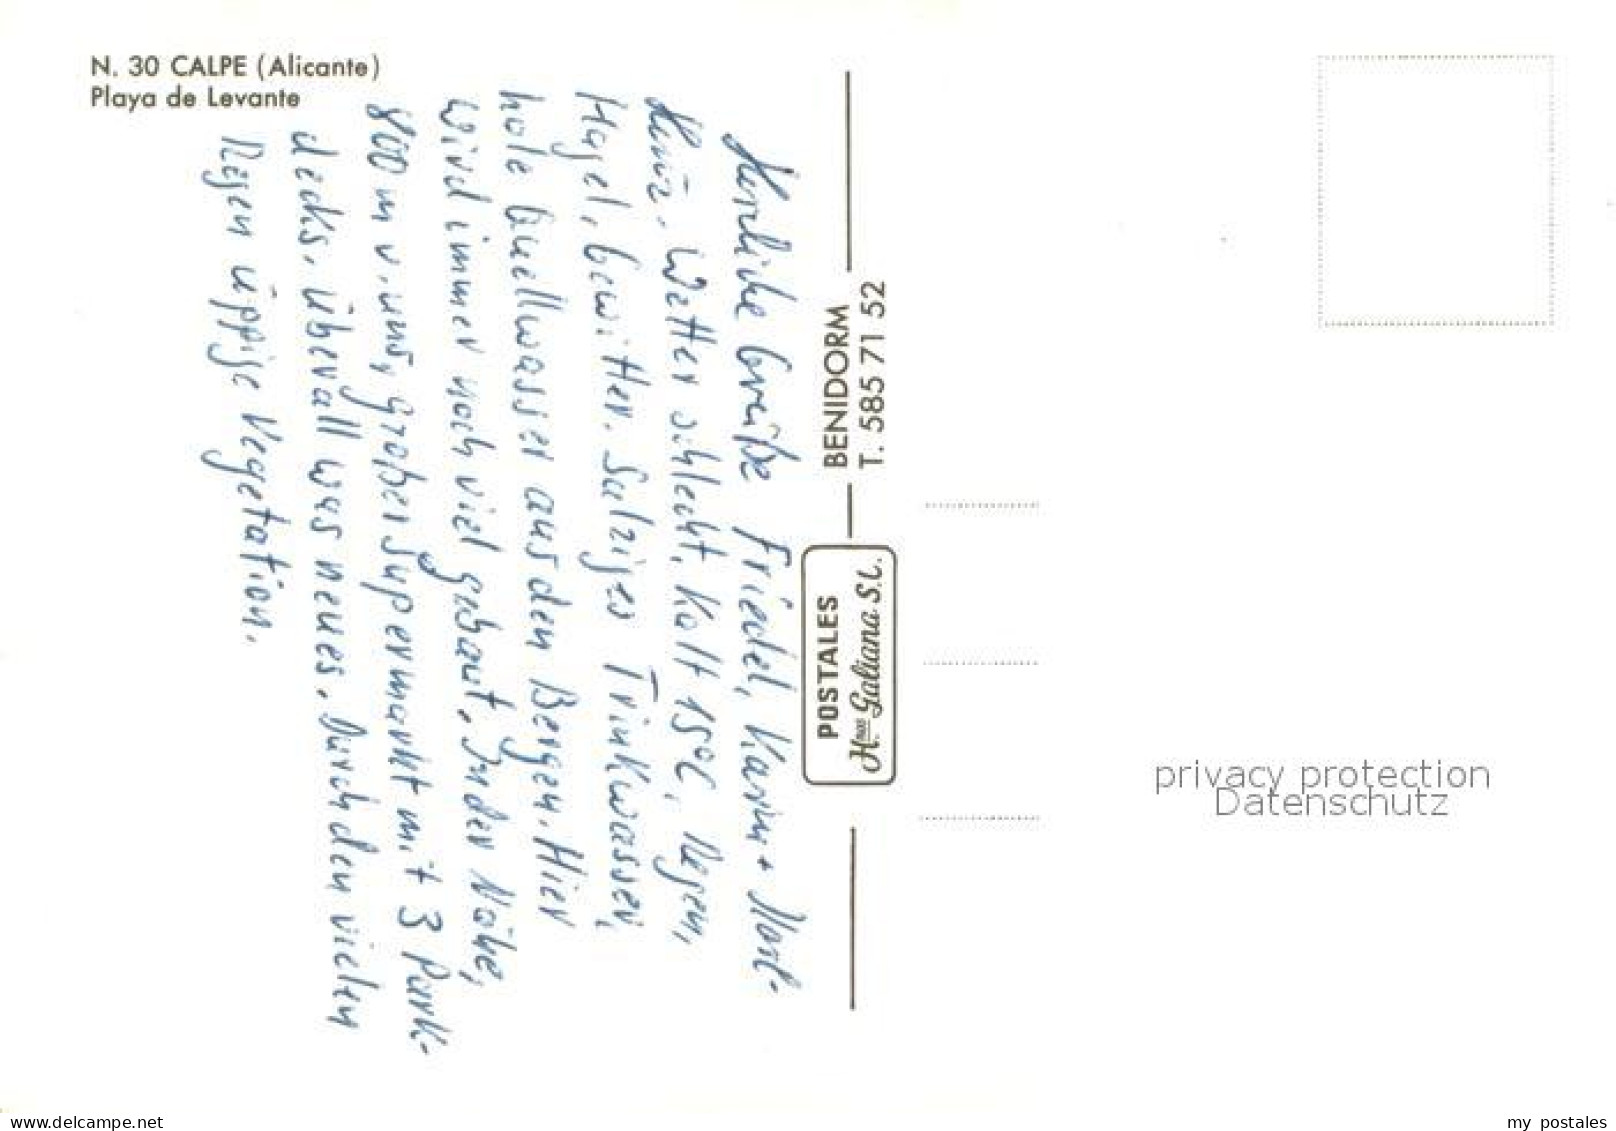 N. 30 CALPE (Alicante)
Playa de Levante
Herzliche Grüße Friedel, Karin +
Wetter schlecht. Kalt 15°C, Regen,
Hagel, Gewitter. Salziges Trinkwasser,
hole Quellwasser aus den Bergen. Hier
wird immer noch viel gebaut. In der Nähe,
800 m v. uns, großer Supermarkt mit 3 Park-
decks. Überall was neues. Durch den vielen
Regen üppige Vegetation.
BENIDORM
T. 585 71 52
POSTALES
H.nos Galiana S.L.
privacy protection
Datenschutz
www.delcampe.net
my_postales